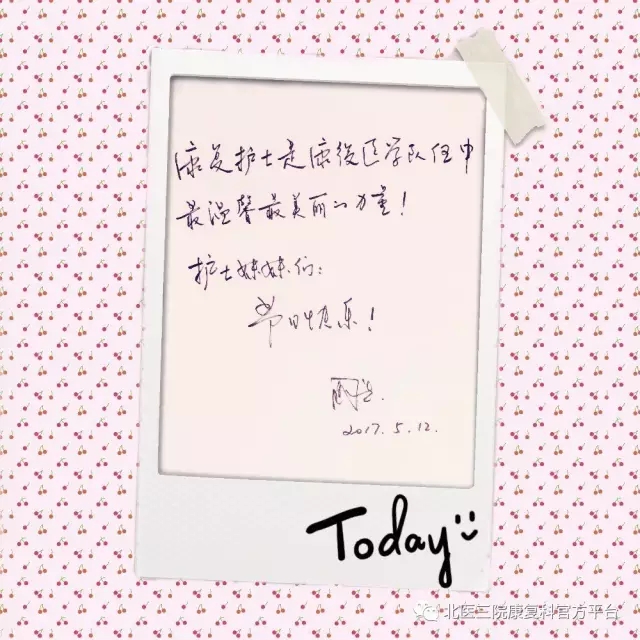 康复护士是康復医学队伍中
最温馨最美丽的力量！
护士妹妹们：
节日快乐！
2017.5.12.
Today
北医三院康复科官方平台